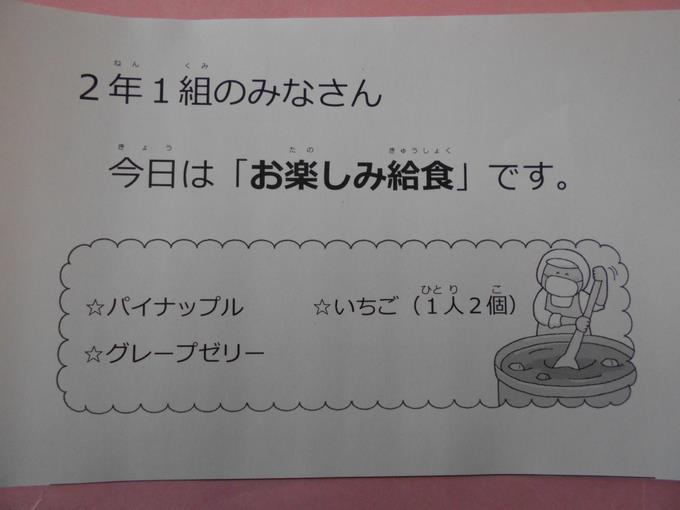 ねん くみ
２年１組のみなさん
きょう たの きゅうしょく
今日は「お楽しみ給食」です。
ひとり こ
☆パイナップル ☆いちご（１人２個）
☆グレープゼリー